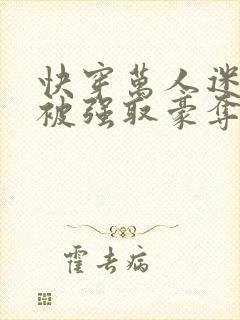 快穿萬人迷
被强取豪奪
霍去病